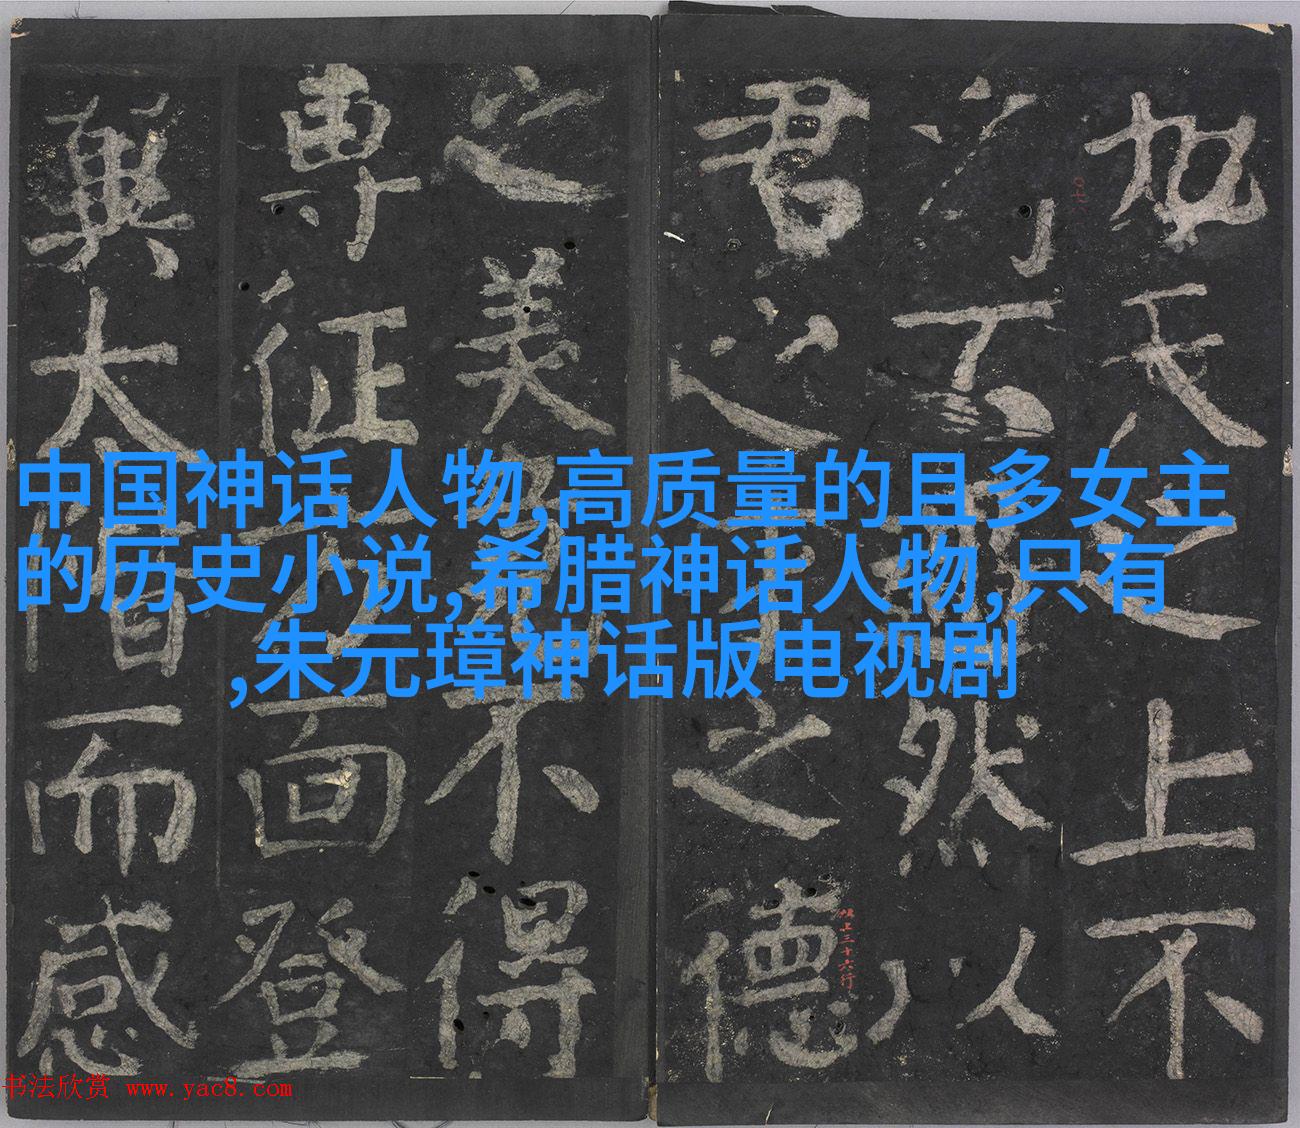 中国神话人物,高质量的且多女主
的历史小说,希腊神话人物,只有
,朱元璋神话版电视剧
加氏之上不
不然以
君之之德
之美不得
專征面登
太階而感
上三十六行
书法欣赏 www.yac8.com